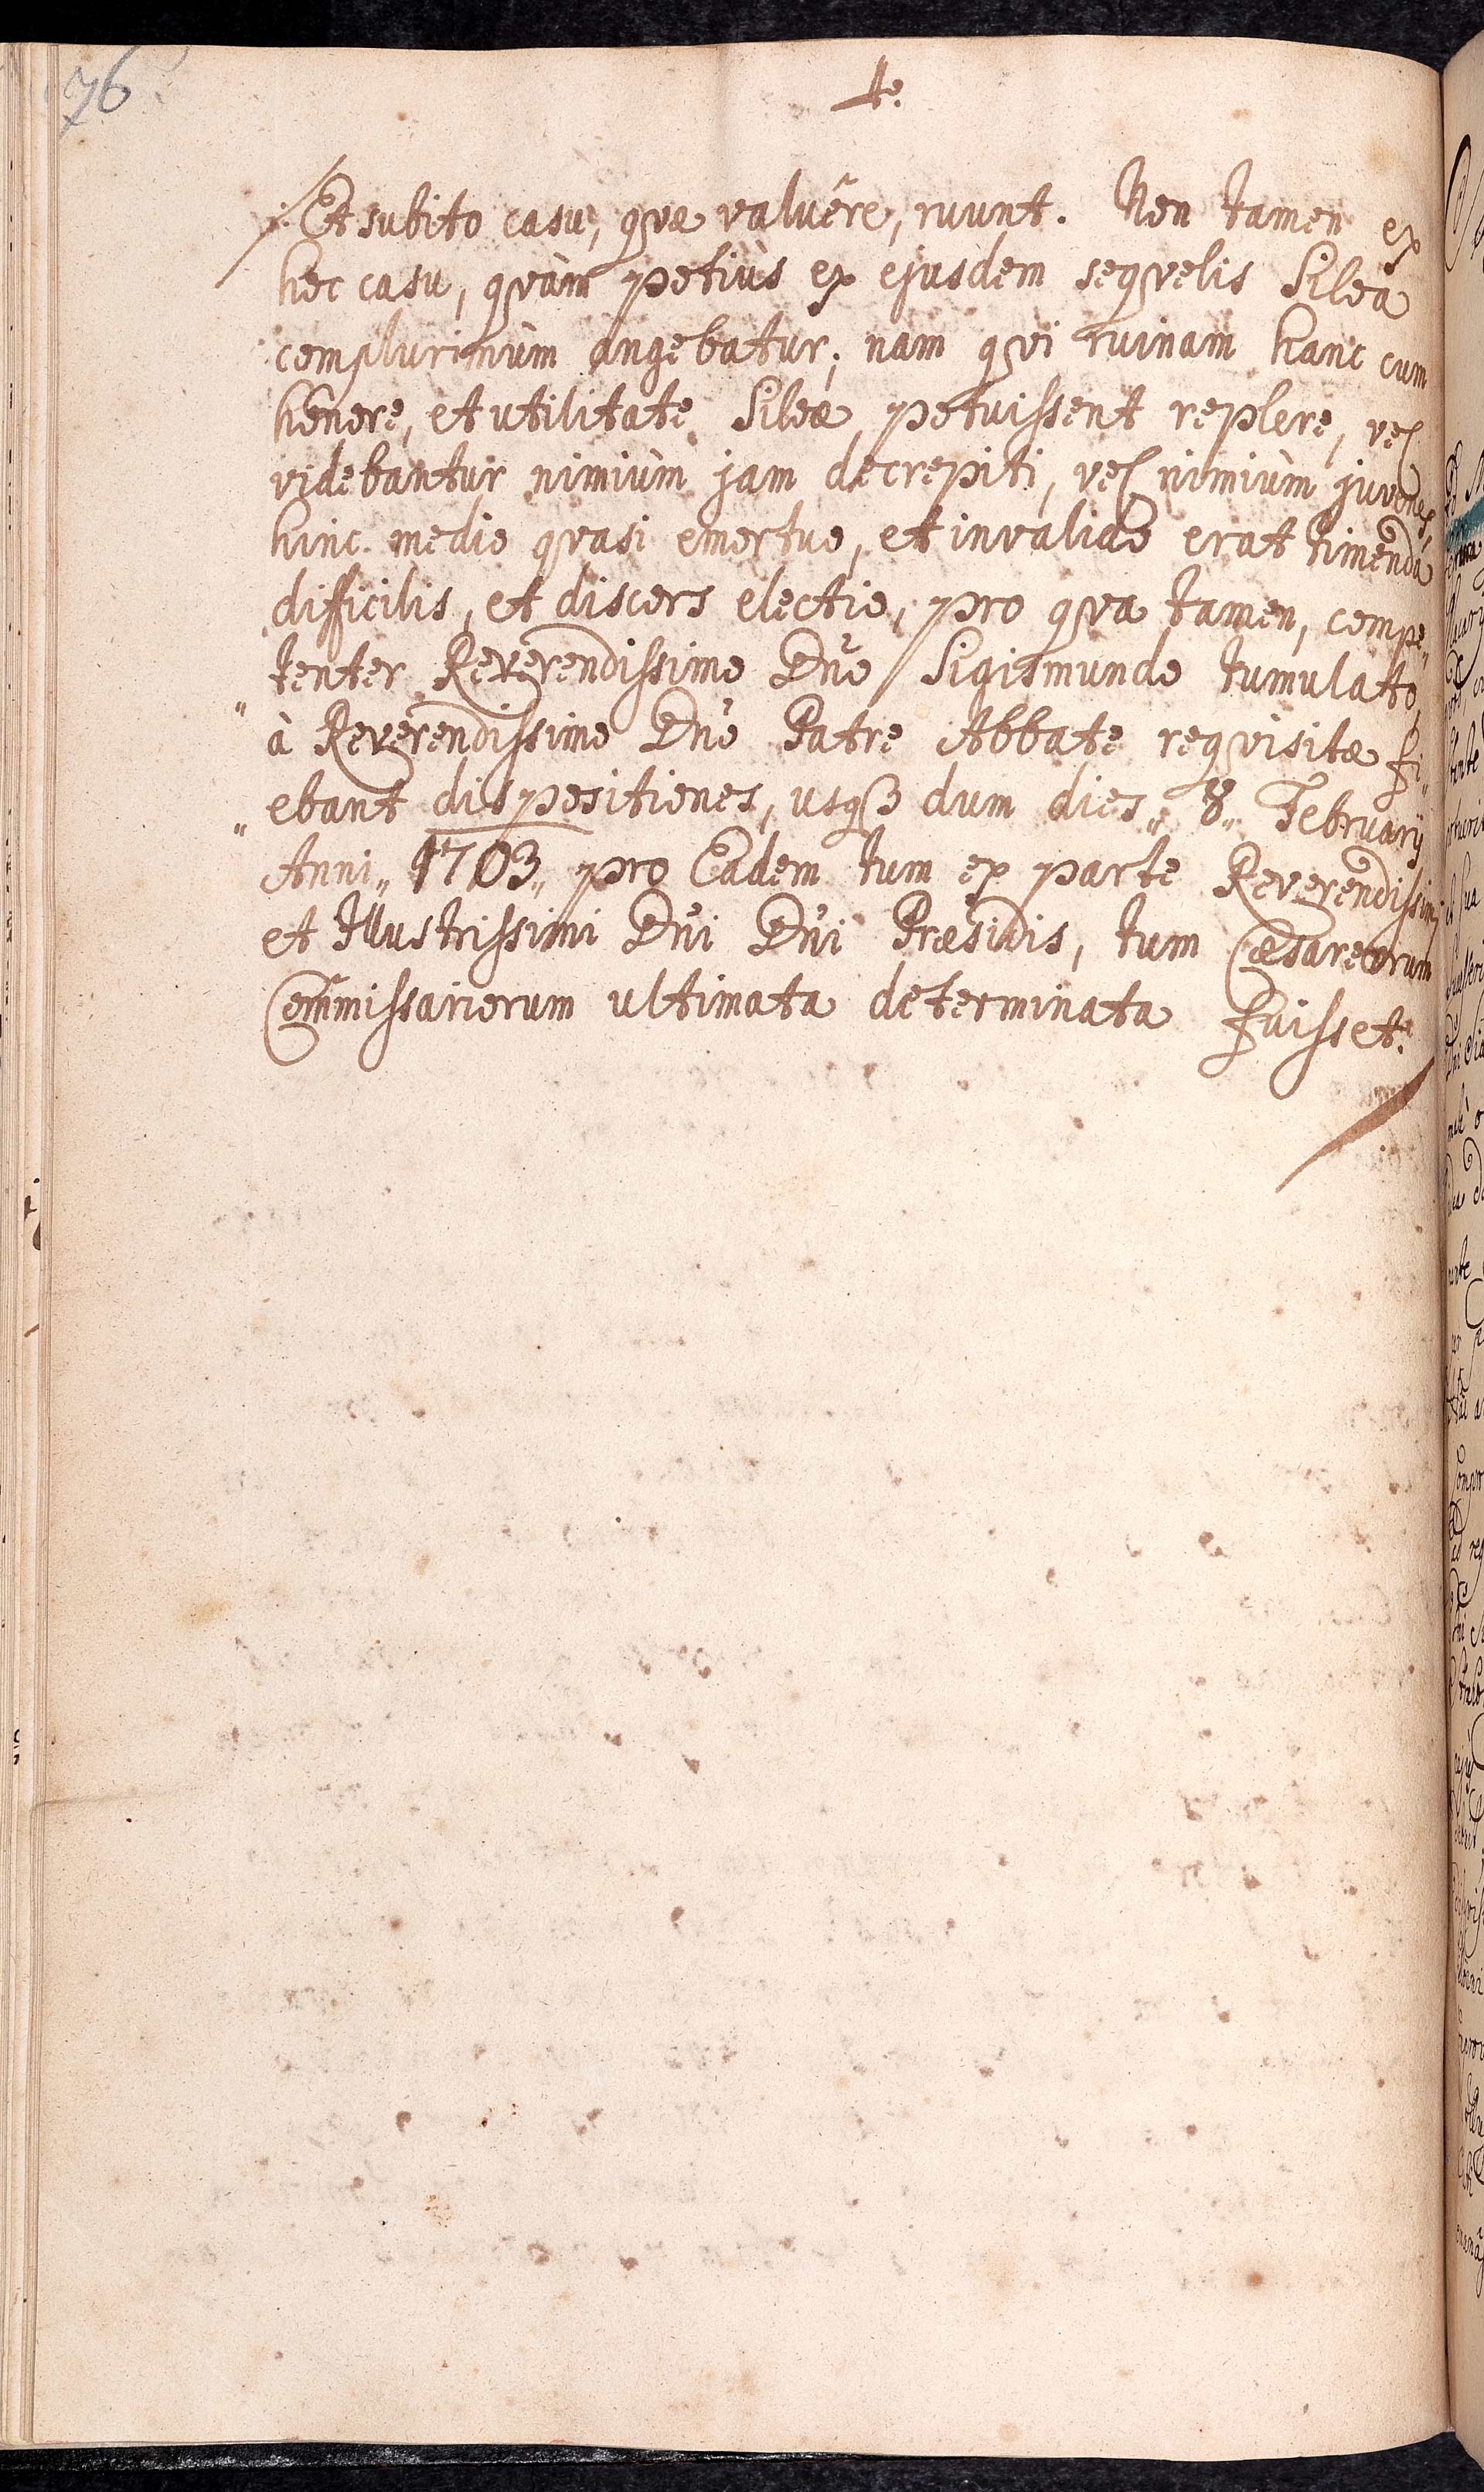 76
4.
Et subito casu, qvæ valuêre, ruunt. Non tamen ex
hoc casu, qvàm potiùs ex ejusdem seqvelis Siloa
complurimùm angebatur; nam qvi ruinam hanc cum
honore, et utilitate Siloæ potuissent replere, vel
videbantur nimiùm jam decrepiti, vel nimiùm juvenes,
hinc medio qvasi emortuo, et invalido erat timenda
difficilis, et discors electio, pro qva tamen, compe„
„tenter Reverendissimo Dño Sigismundo tumulato,
à Reverendissimo Dño Patre Abbate reqvisitæ fi„
„ebant dispositiones, usqꝫ dum dies „8„ Februarÿ
Anni „1703„ pro Eadem tum ex parte Reverendissimi
et Illustrissimi Dñi Dñi Præsidis, tum Cæsareorum
Com̃missariorum ultimata determinata fuisset.